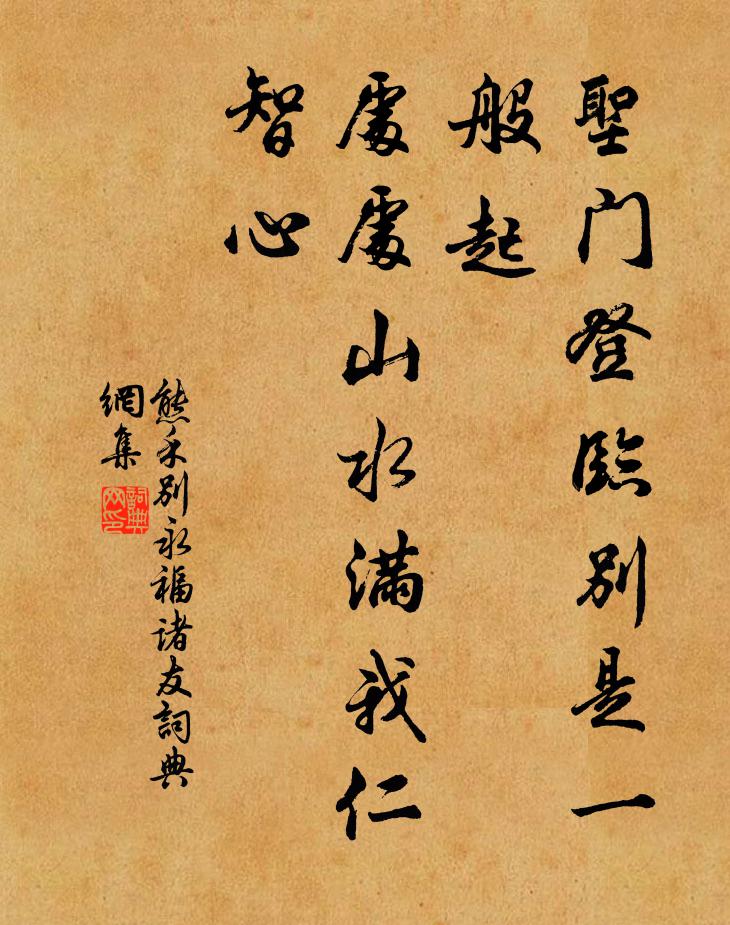 聖门登臨別是一
般起
處處山水满我仁
智心
熊禾別永福诸友詞典
網集
詞典
网印